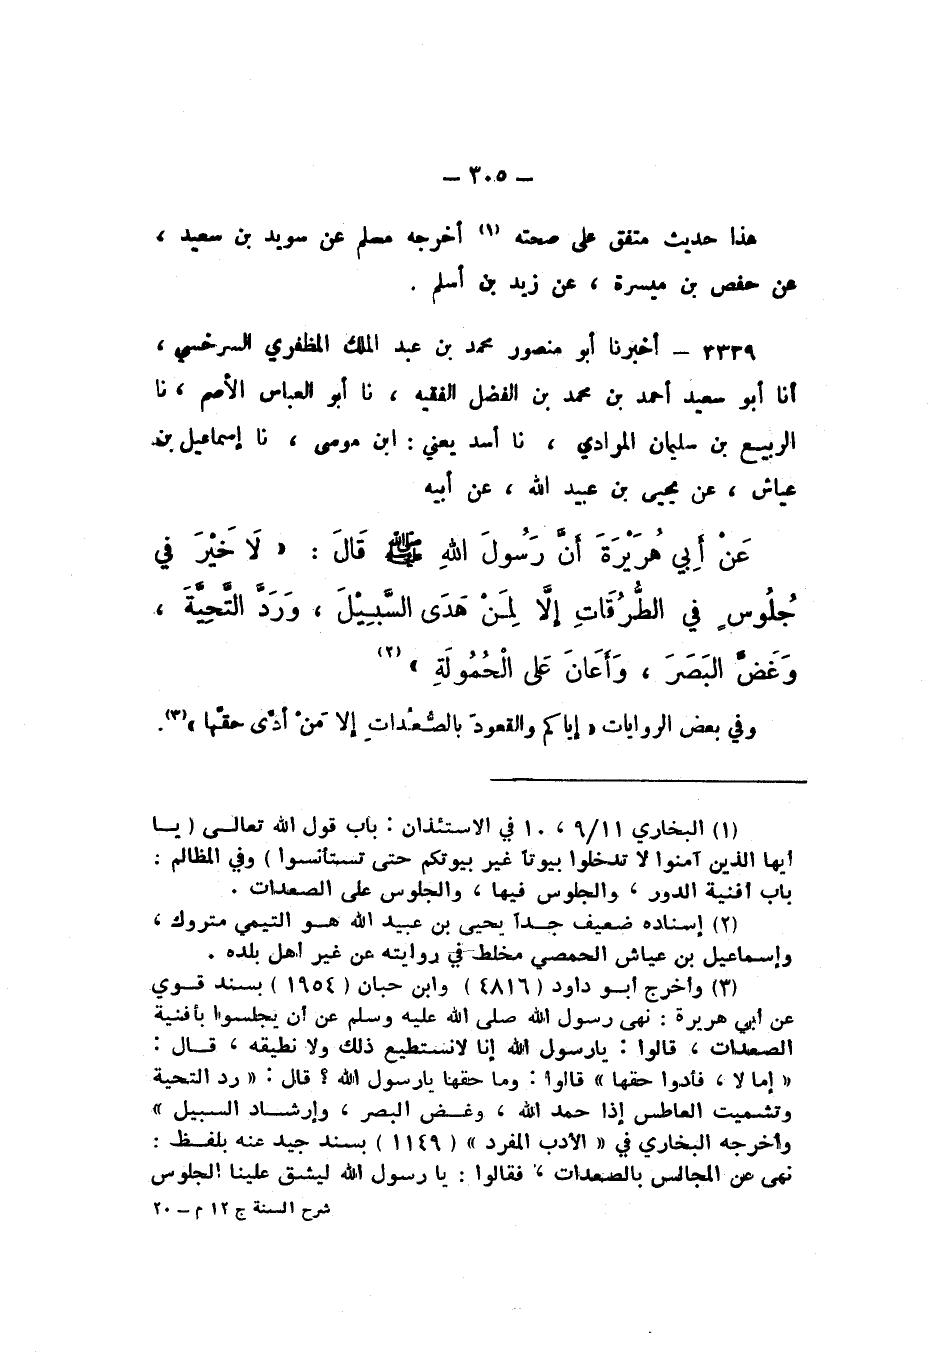 — ٣٠٥ —
هذا حديث متفق على صحته (١) أخرجه مسلم عن سويد بن سعيد ،
عن حفص بن ميسرة ، عن زيد بن أسلم .
٣٣٣٩ – أخبرنا أبو منصور محمد بن عبد الملك المظفري السرخسي ،
أنا أبو سعيد أحمد بن محمد بن الفضل الفقيه ، نا أبو العباس الأصم ، نا
الربيع بن سليمان المرادي ، نا أسد يعني : ابن موسى ، نا إسماعيل بن
عياش ، عن يحيى بن عبيد الله ، عن أبيه
عَنْ أَبِي هُرَيْرَةَ أَنَّ رَسُولَ اللهِ ﷺ قَالَ : « لَا خَيْرَ في
جُلُوسٍ في الطُّرُقَاتِ إِلَّا لِمَنْ هَدَى السَّبِيْلَ ، وَرَدَّ التَّحِيَّةَ ،
وَغَضَّ البَصَرَ ، وَأَعَانَ عَلى الْحُمُولَةِ » (٢)
وفي بعض الروايات « إياكم والقعودَ بالصُّعُداتِ إلا مَنْ أدَّى حقَّها »(٣).
(١) البخاري ٩/١١ ، ١٠ في الاستئذان : باب قول الله تعالى ( يا
أيها الذين آمنوا لا تدخلوا بيوتاً غير بيوتكم حتى تستأنسوا ) وفي المظالم :
باب أفنية الدور ، والجلوس فيها ، والجلوس على الصعدات .
(٢) إسناده ضعيف جداً يحيى بن عبيد الله هو التيمي متروك ،
وإسماعيل بن عياش الحمصي مخلط في روايته عن غير أهل بلده .
(٣) وأخرج أبو داود ( ٤٨١٦ ) وابن حبان ( ١٩٥٤ ) بسند قوي
عن أبي هريرة : نهى رسول الله صلى الله عليه وسلم عن أن يجلسوا بأفنية
الصعدات ، قالوا : يارسول الله إنا لانستطيع ذلك ولا نطيقه ، قال :
« إما لا ، فأدوا حقها » قالوا : وما حقها يارسول الله ؟ قال : « رد التحية
وتشميت العاطس إذا حمد الله ، وغض البصر ، وإرشاد السبيل »
وأخرجه البخاري في « الأدب المفرد » ( ١١٤٩ ) بسند جيد عنه بلفظ :
نهى عن المجالس بالصعدات ، فقالوا : يا رسول الله ليشق علينا الجلوس
شرح السنة ج ١٢ م – ٢٠